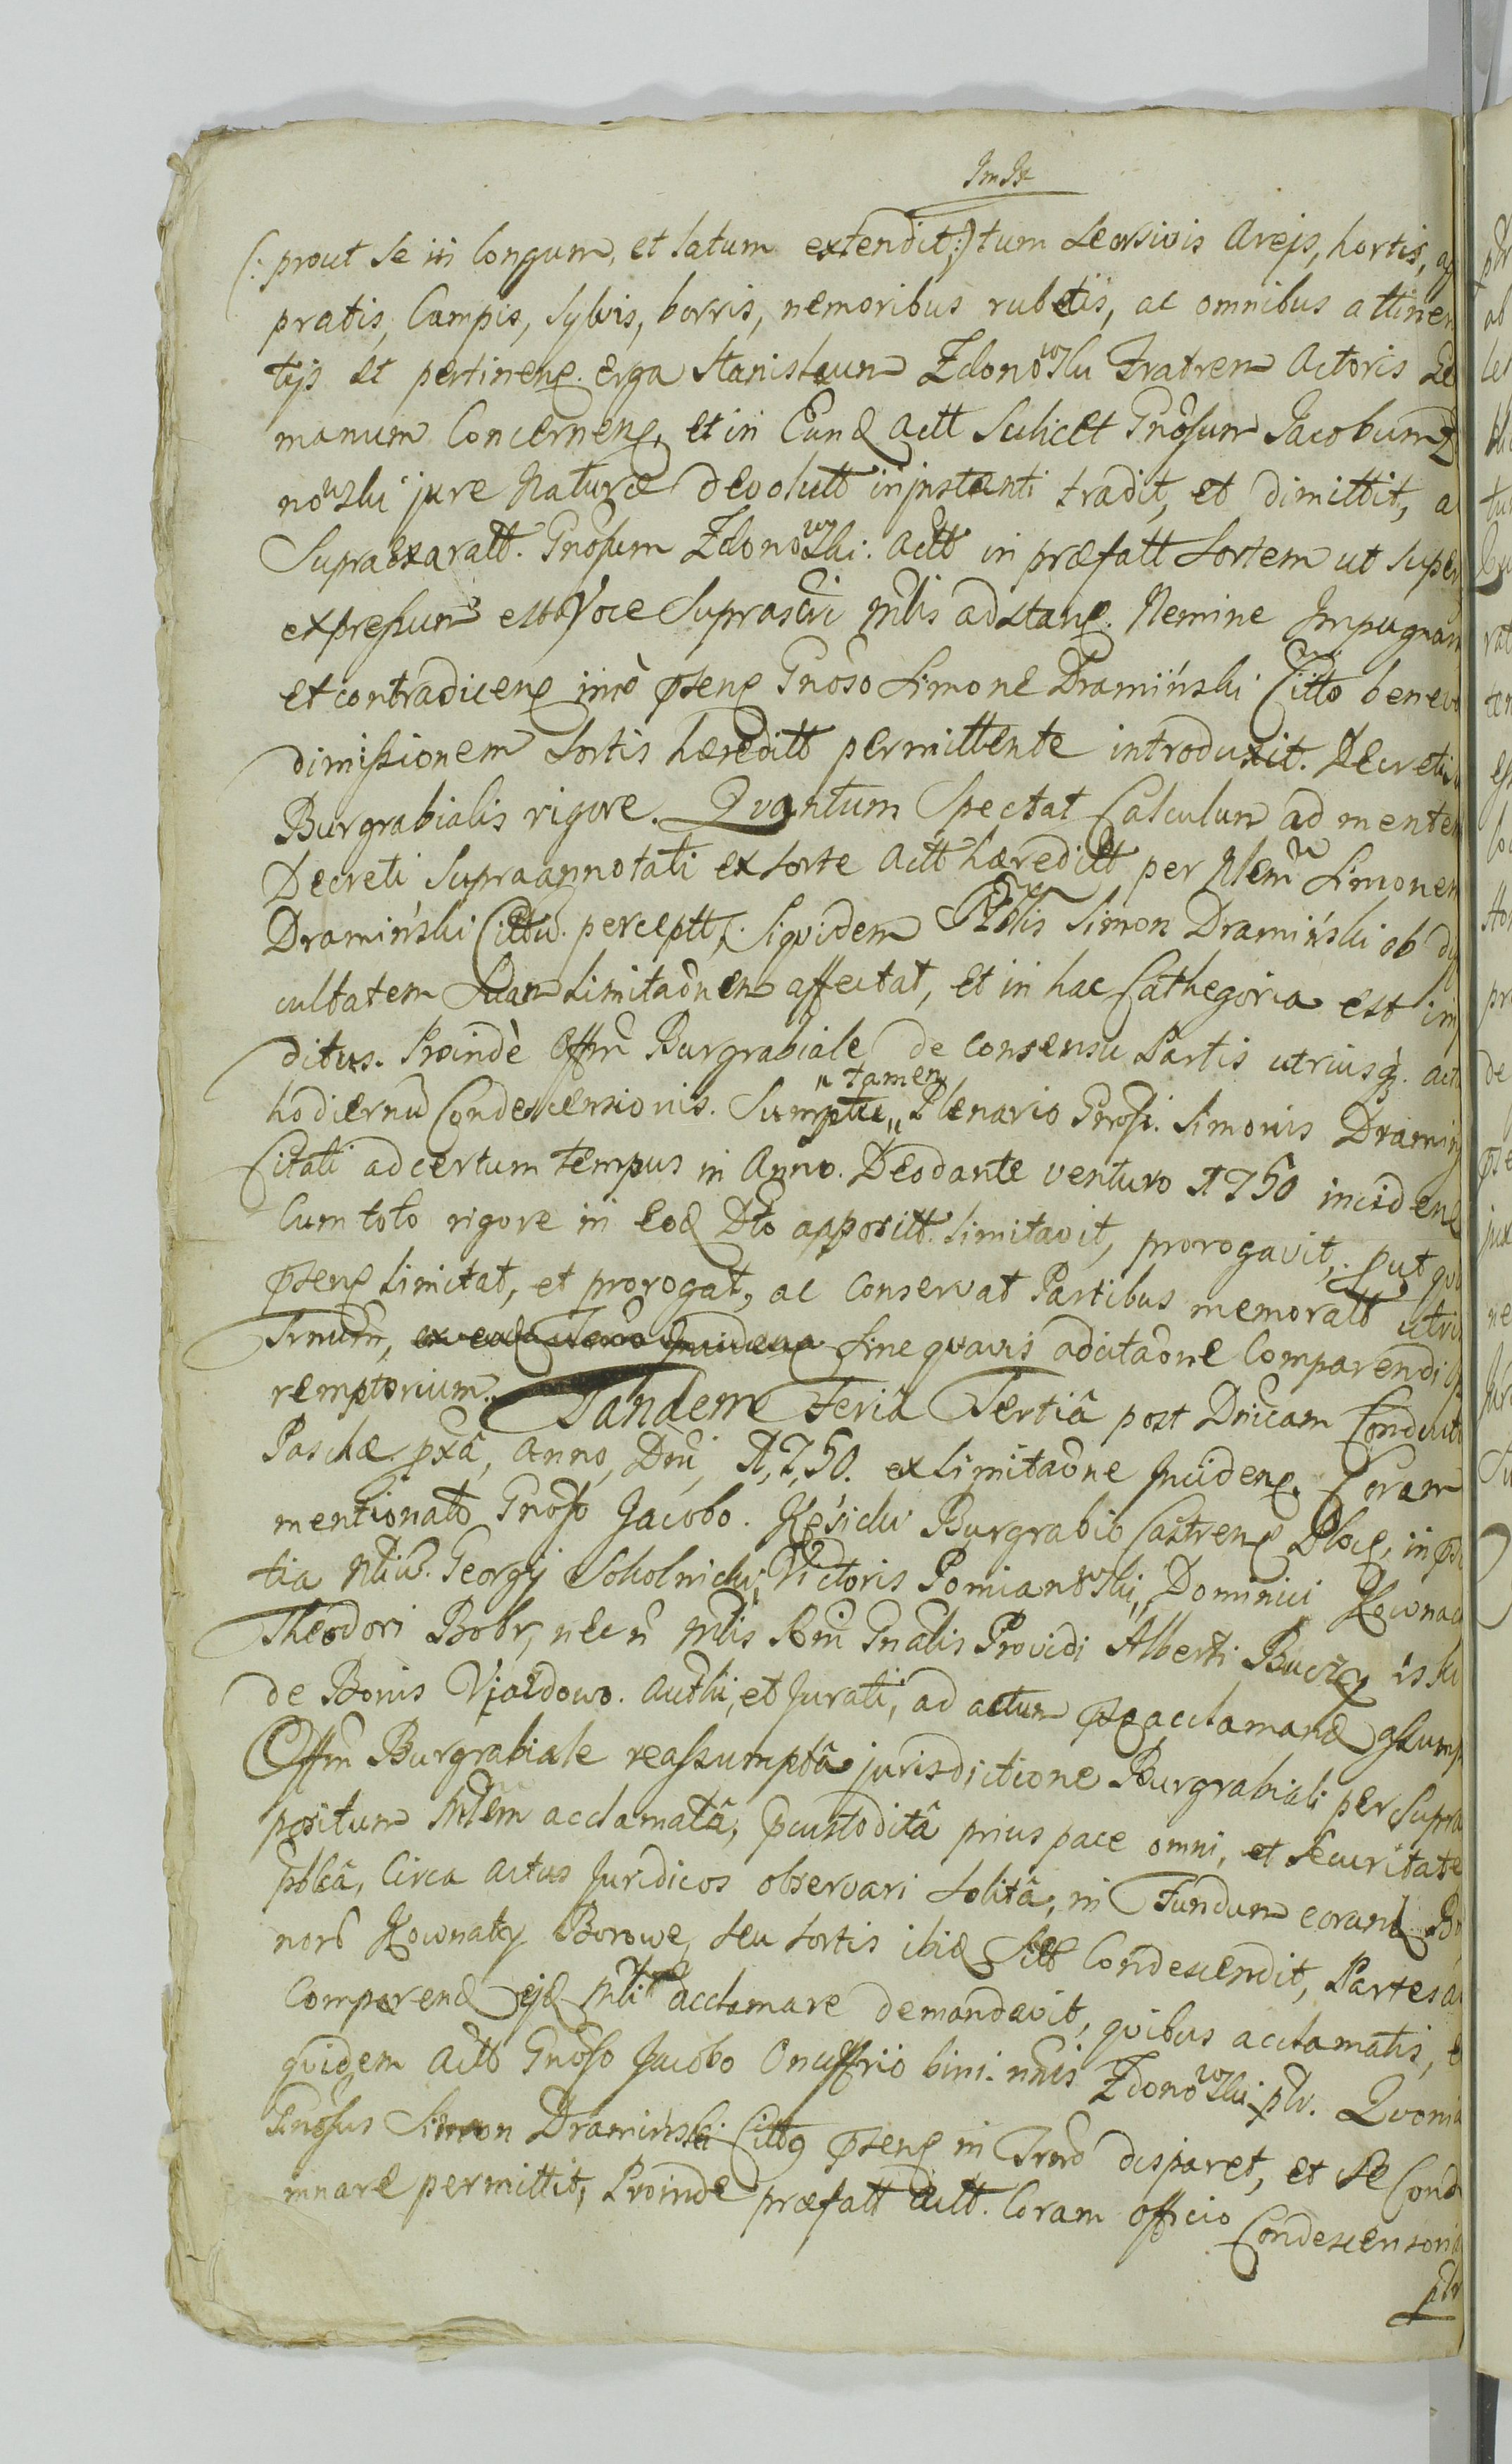 (: prout se in longum, et latum extendit :) tum seorsivis areis, hortis, ag
pratis, Campis, Sylvis, borris, nemoribus rubetis, ac omnibus attinen
tijs et pertinen. erga Stanislaum Zdonowski Fratrem Actoris Ge
manum Concernen, et in Eund Actt Scilicet Gnosum Jacobum Z
nowski jure Naturæ devolutt in instanti tradit, et dimittit, a
Supraexaratt. Gnosum Zdonowski. Actt in præfatt Sortem ut super
expressum est Voce Suprascri Mlis adstan. Nemine Impugnan
et contradicen imò psen Gnoso Simone Dramiński Citto benevo
dimissionem Sortis hæreditt permittente introduxit. Decreti
Burgrabialis rigore. Quantum Spectat Calculum ad mentem
Decreti Supraannotati ex sorte Actt hæreditt per Nlem Simonem
Dramiński Cittu. perceptt, Siquidem Nblis Simon Dramiński ob
cultatem Suam Limitaõnem affectat, et in hac Cathegoria est im
ditus. Proindè Offm Burgrabiale de consensu Partis utriusq. act
hodiernũ Condescensionis. Sumptu „ tamen „ Plenario Gnosi. Simonis Dramiń
Citati ad certum tempus in Anno. Deodante venturo 1750 inciden
Cum toto rigore in eod Dto appositt. limitavit, prorogavit, put
psen limitat, et prorogat, ac conservat Partibus memoratt utri
Trnum, Sine quavis aditaõne Comparendi
remptorium. Tandem Feria Tertiâ post Dnicam Conduct
Paschæ pxâ, Anno, Dni, 1,7,50. ex limitaõne Inciden. Coram
mentionato Gnoso Jacobo. Kęsicki Burgrabio Castren Ploc, in
tia Nliu. Georgij Sokolnicki, Victoris Pomianowski, Dominici Kownac
Theodori Bobr, nec n Mlis Rni Gnalis Providi Alberti
de Bonis Ujazdowo. Authi, et Jurati, ad actum acclamand assump
Offm Burgrabiale reassumptâ jurisdictione Burgrabiali per Supra
positum Mlem acclamatâ, pcustoditâ prius pace omni, et Securitate
pblicâ, Circa actus Juridicos observari Solitâ, in Fundum eorund Bo
nord Kownaty Borowe, seu Sortis ibid Sitt Condescendit, Partes
Comparend ejd Mli acclamare demandavit, quibus acclamatis, e
quidem Actt Gnoso Jacobo Onuffrio bini. nnis Zdonowski ptr. Quonia
Gnosus Simon Dramiński Citt9 psen in Trno disparet, et se Cond
mnare permittit, Proinde præfatt Actt. Coram officio Condescensoria
ptr